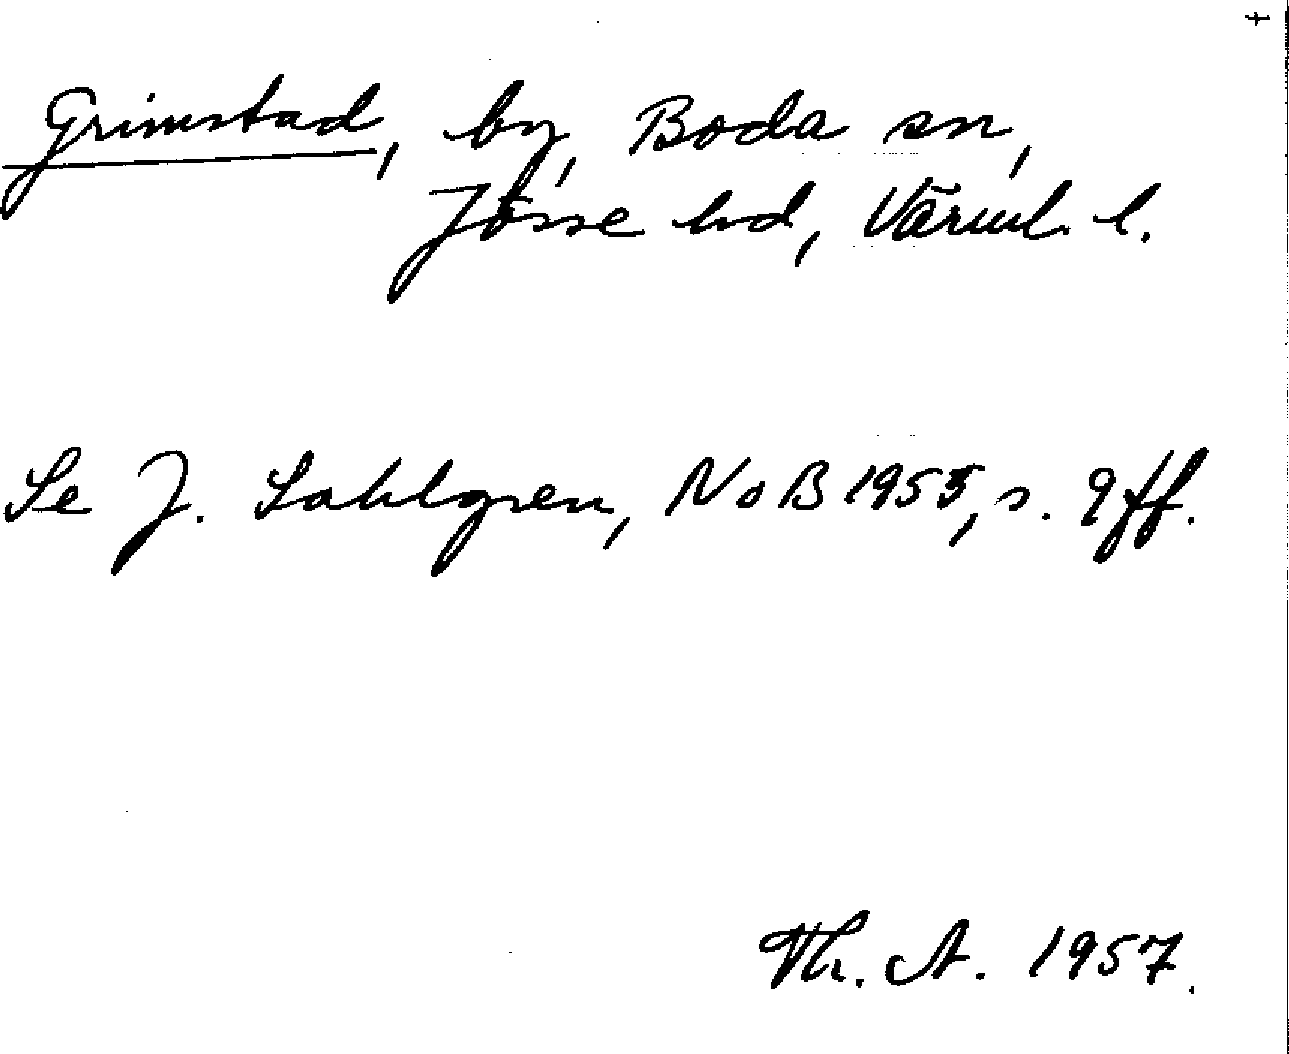 Grimstad, by, Boda sn,
Jösse hd, Värml. l.
Se J. Sahlgren, NoB 1953, s. 9 ff.
Th. A. 1957.